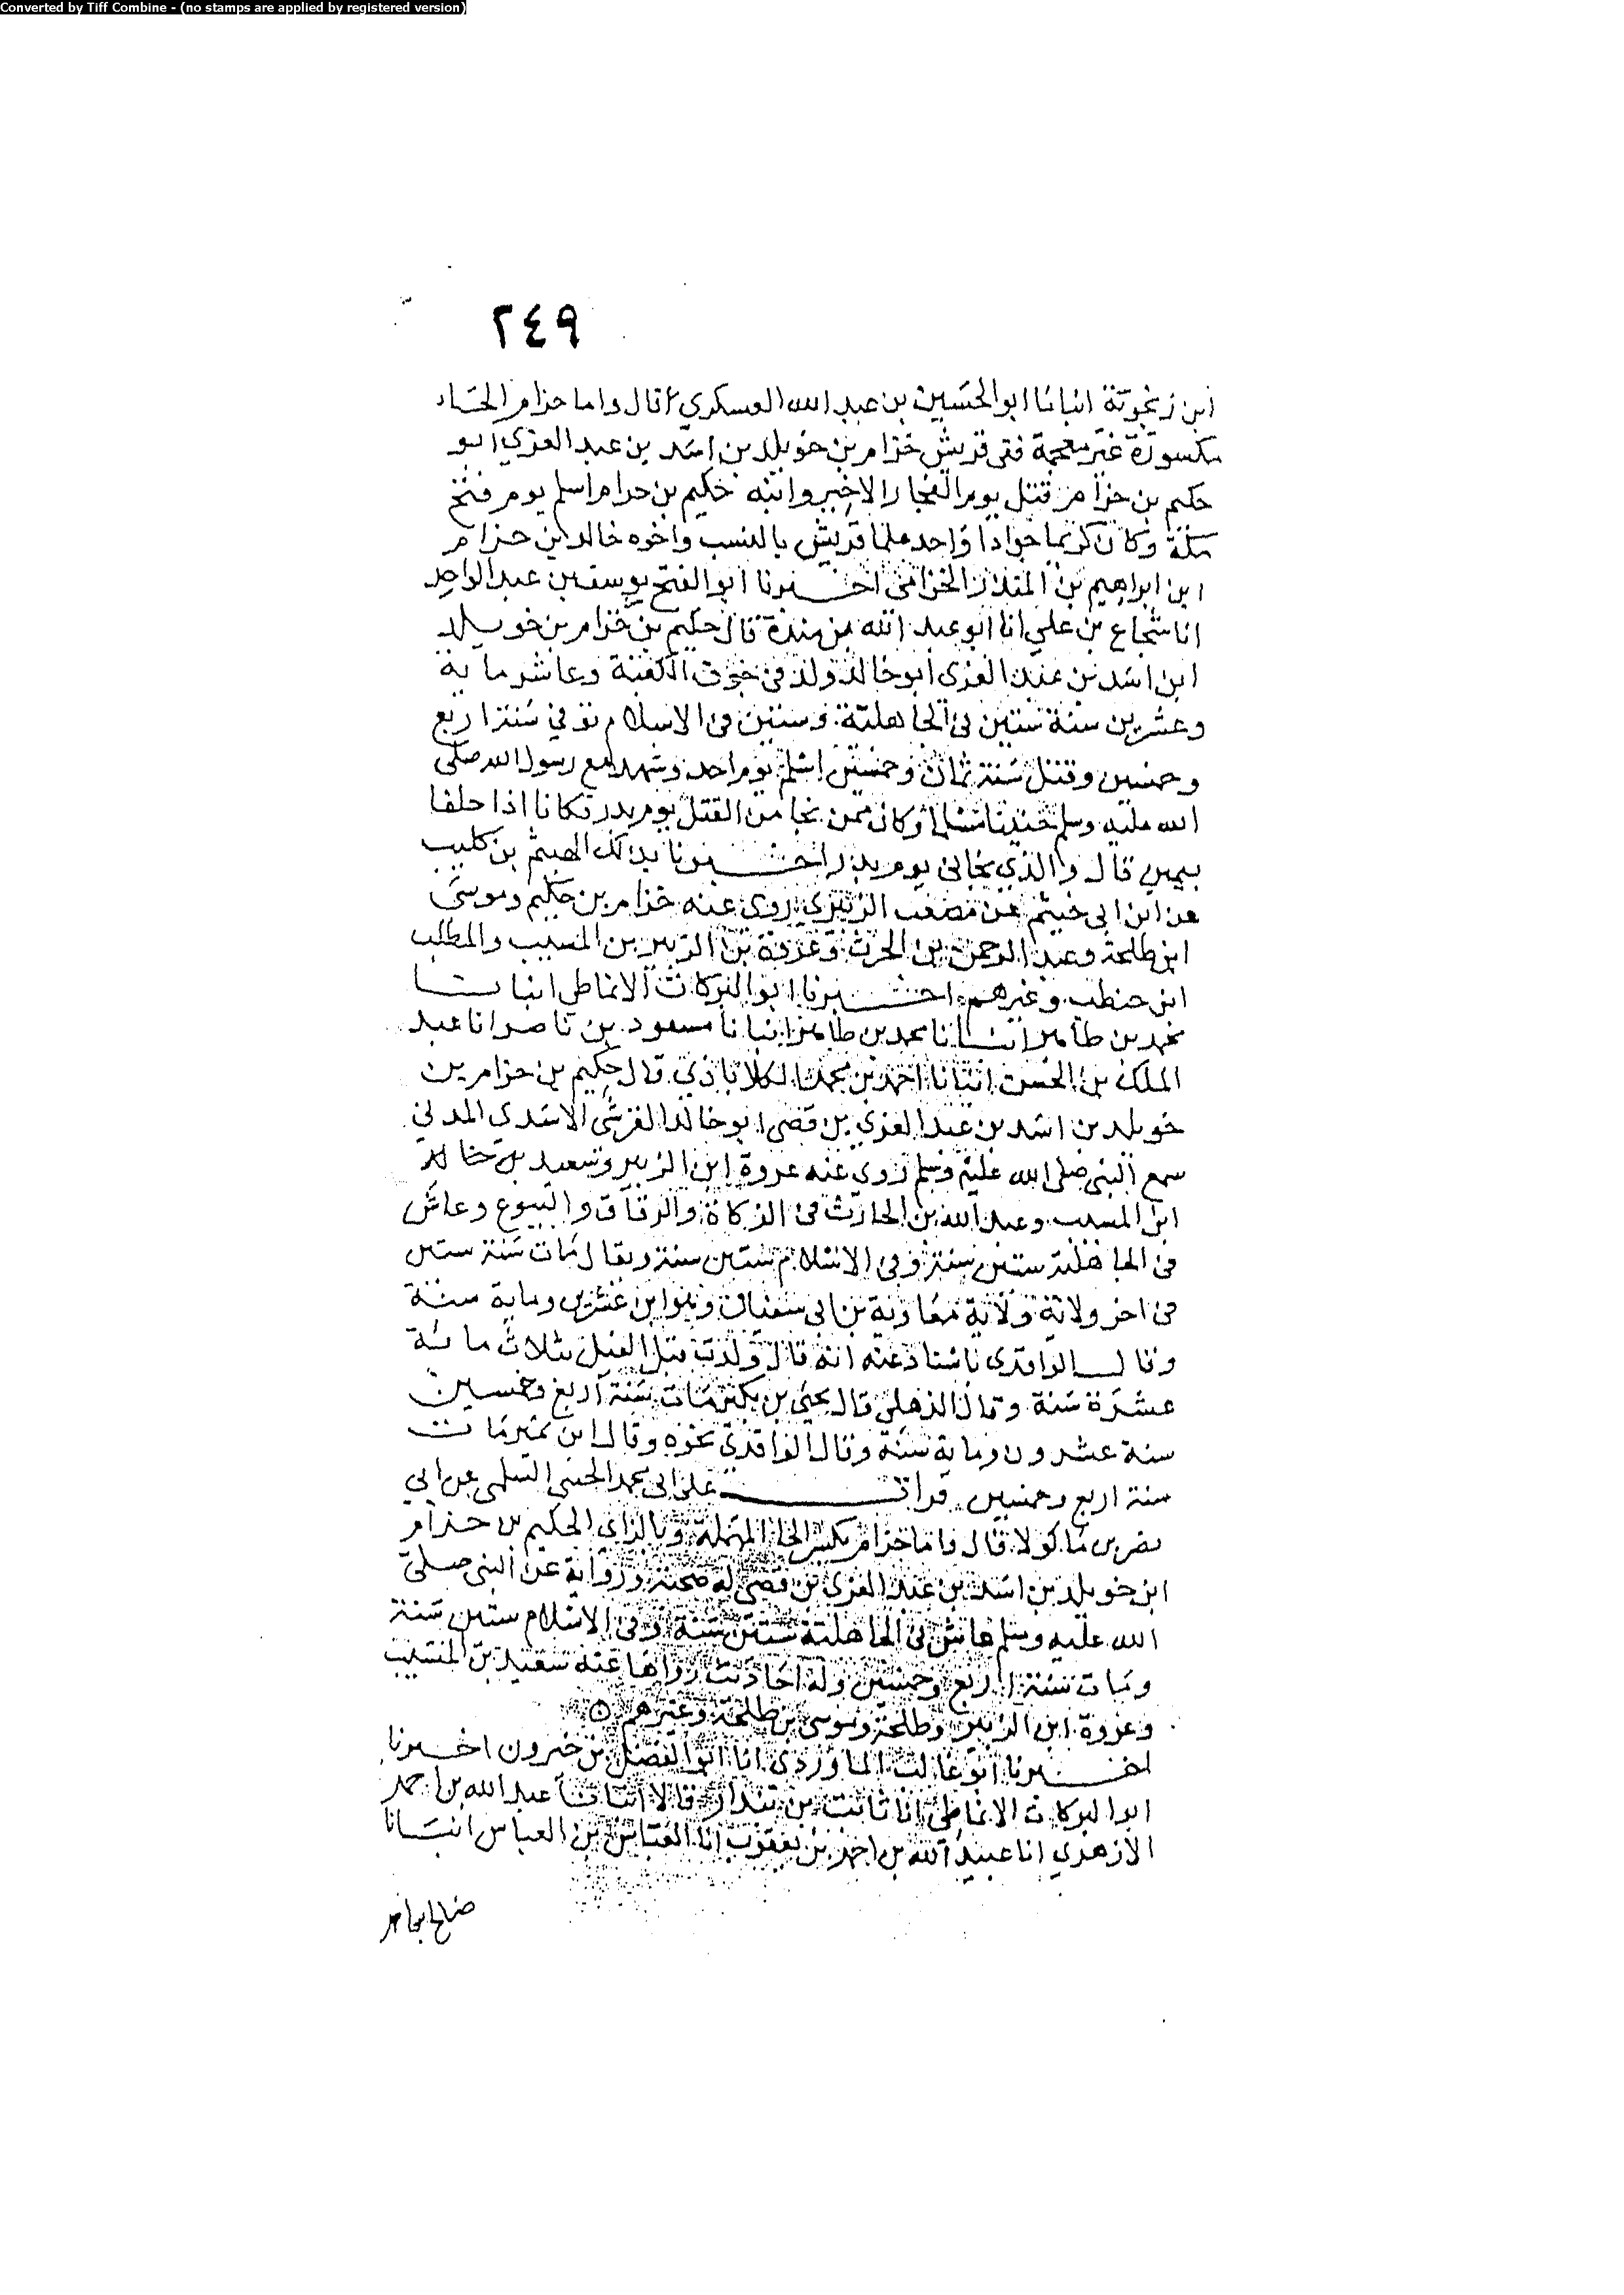 Converted by Tiff Combine - (no stamps are applied by registered version)
٢٤٩
ابن زنجوية انبانا ابو الحسين بن عبد الله العسكري قال واما حزام الحاء
مكسورة غير معجمة فتى قريش حزام بن خويلد بن اسد بن عبد العزي ابو
حكيم بن حزام قتل يوم الفجار الاخير وابنه حكيم بن حزام اسلم يوم فتح
مكة وكان كريما جوادا واحد علما قريش بالنسب واخوه خالد بن حزام
ابن ابراهيم بن المنذر الحزامى اخبرنا ابو الفتح يوسف بن عبد الواحد
انا شجاع بن علي انا ابو عبد الله بن مندة قال حكيم بن حزام بن خويلد
ابن اسد بن عبد العزى ابو خالد ولد فى جوف الكعبة وعاش ماية
وعشرين سنة ستين فى الجاهلية وستين فى الاسلام توفي سنة اربع
وخمسين وقتل سنة ثمان وخمسين اسلم يوم احد وشهد مع رسول الله صلى
الله عليه وسلم حنينا مسلما وكان ممن نجا من القتل يوم بدر فكانا اذا حلفا
بيمين قال والذي نجانى يوم بدر اخبرنا بذلك الهيثم بن كليب
عن ابن ابى خيثم عن مصعب الزبيري روى عنه حزام بن حكيم وموسى
ابن طلحة وعبد الرحمن بن الحرث وعروة بن الزبير بن المسيب والمطلب
ابن حنطب وغيرهم اخبرنا ابو البركات الانماطي انبانا
محمد بن طاهر انبانا محمد بن طاهر انبانا مسعود بن ناصر انا عبد
الملك بن الحسن انبانا احمد بن محمد الكلاباذي قال حكيم بن حزام بن
خويلد بن اسد بن عبد العزي بن قصى ابو خالد القرشى الاسدي المدني
سمع النبى صلى الله عليه وسلم روي عنه عروة ابن الزبير وسعيد بن خالد
ابن المسيب وعبد الله بن الحارث فى الزكاة والرقاق والبيوع وعاش
فى الجاهلية ستين سنة وفى الاسلام ستين سنة ويقال مات سنة ستين
فى اخر ولاية ولاية معاوية بن ابى سفيان وهو ابن عشرين وماية سنة
وقال الواقدى باسناد عنه انه قال ولدت قبل الفيل بثلاث مائة
عشرة سنة وقال الذهلي قال يحيى بن بكير مات سنة اربع وخمسين
سنة عشرون وماية سنة وقال الواقدي نحوه وقال ابن نمير مات
سنة اربع وخمسين قرات على ابى محمد الحسى السلمى عن ابي
نصر بن ماكولا قال واما حزام بكسر الحا المهملة وبالزاي الحكيم بن حزام
ابن خويلد بن اسد بن عبد العزى بن قصى له صحبة ورواية عن النبى صلى
الله عليه وسلم عاش فى الجاهلية ستين سنة وفى الاسلام ستين سنة
ومات سنة اربع وخمسين وله احاديث رواها عنه سعيد بن المسيب
وعروة ابن الزبير وطلحة وموسى بن طلحة وغيرهم
اخبرنا ابو غالب الماوردى انا ابو الفضل بن خيرون اخبرنا
ابو البركات الانماطى انا ثابت بن بندار قالا انبانا عبد الله بن احمد
الازهدي انا عبيد الله بن احمد بن يعقوب انا العباس بن العباس انبانا
صالح ابن احمد